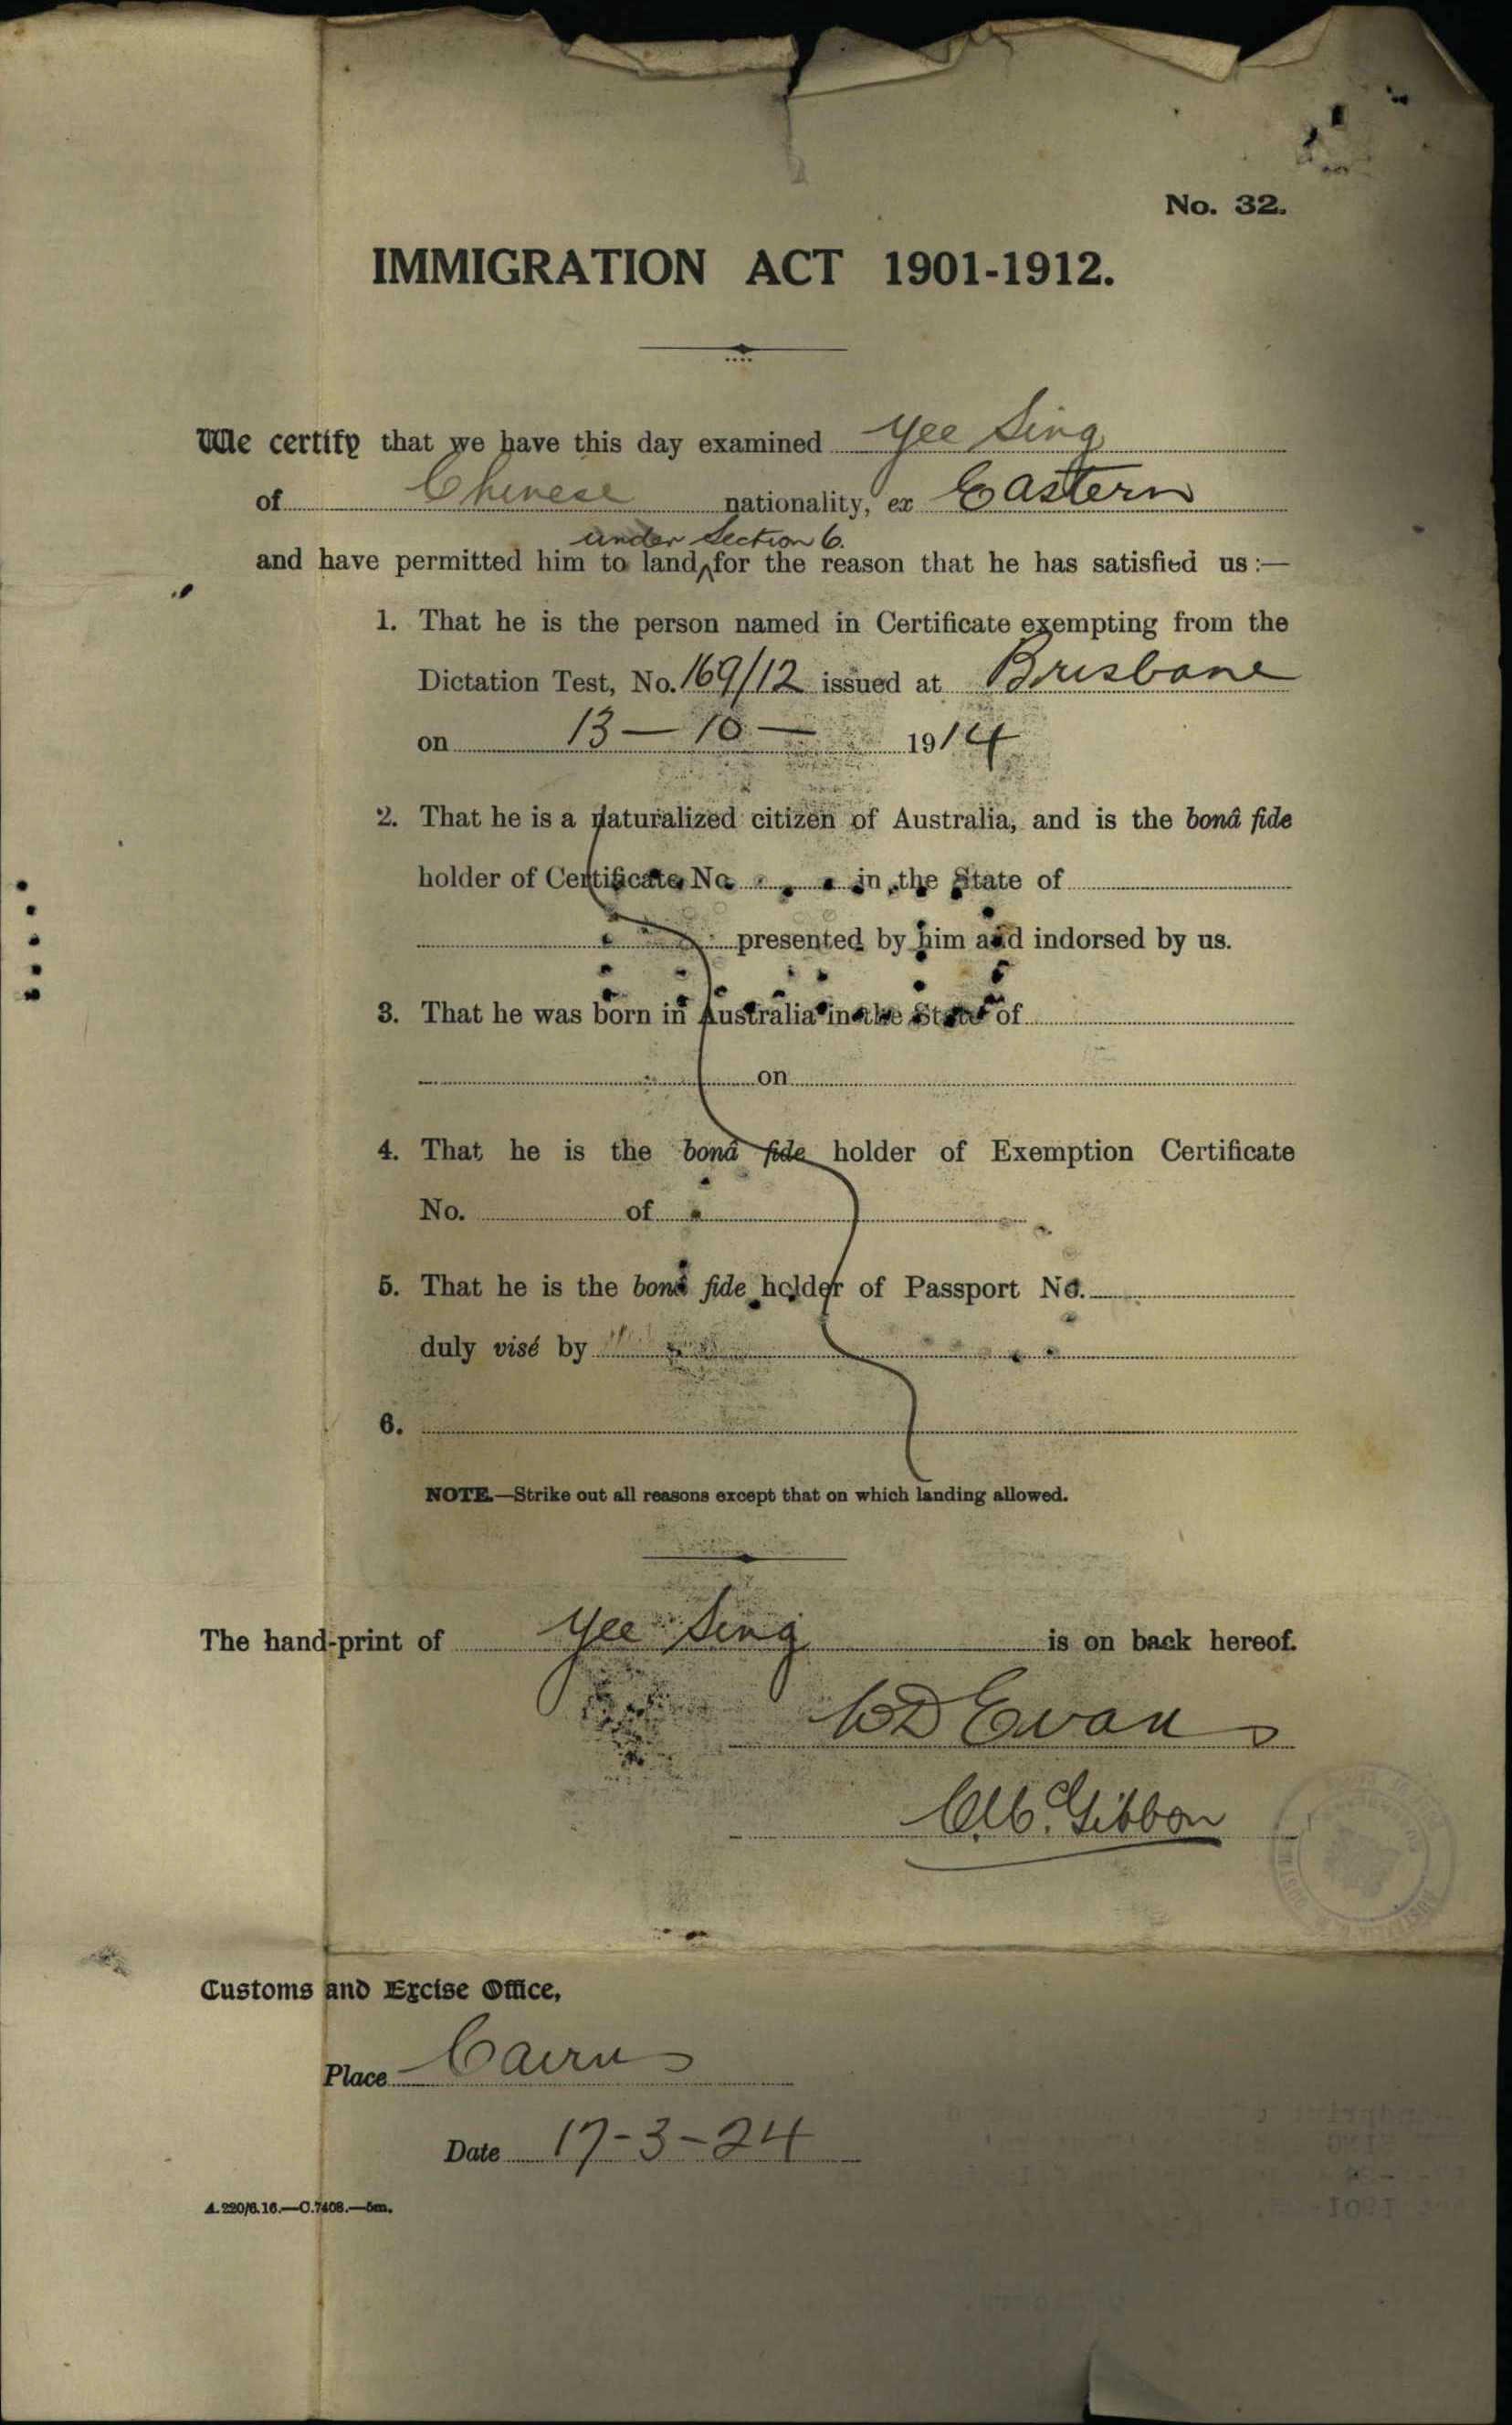 No. 32.
IMMIGRATION ACT 1901-1912.
We certify that we have this day examined Yee Sing
of Chinese nationality, ex Eastern
under Section 6.
and have permitted him to land, ^ for the reason that he has satisfied us:—
1. That he is the person named in Certificate exempting from the
Dictation Test, No. 169/12 issued at Brisbane
on 13 — 10 — 1914
2. That he is a naturalized citizen of Australia, and is the bonâ fide
holder of Certificate No. in the State of
presented by him and indorsed by us.
3. That he was born in Australia in the State of
on
4. That he is the bonâ fide holder of Exemption Certificate
No. of
5. That he is the bonâ fide holder of Passport No.
duly visé by
6.
NOTE.—Strike out all reasons except that on which landing allowed.
The hand-print of Yee Sing is on back hereof.
WD Evans
Gibbon
Customs and Excise Office,
Place Cairns
Date 17-3-24
A.220/6.16.—C.7408.—5m.